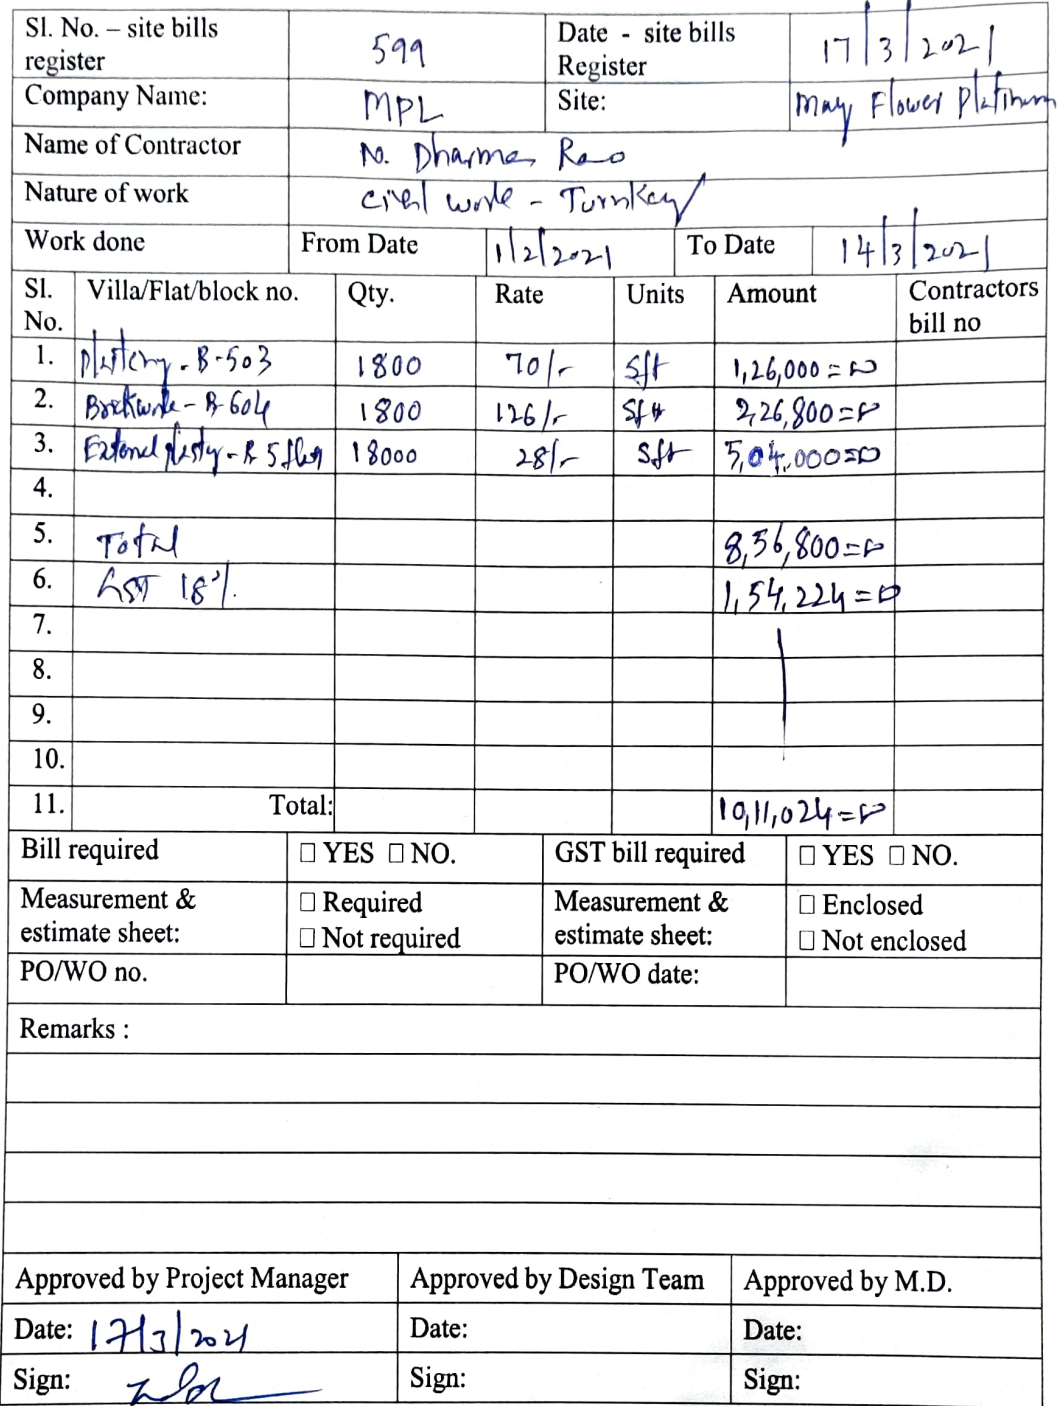 Sl. No. – site bills register 599 Date - site bills Register 17/3/2021
Company Name: MPL Site: May Flower Platinum
Name of Contractor N. Dharma Rao
Nature of work Civil work - Turnkey
Work done From Date 1/2/2021 To Date 14/3/2021
Sl. No. Villa/Flat/block no. Qty. Rate Units Amount Contractors bill no
1. Plastery - B-503 1800 70/- Sft 1,26,000=00
2. Brickwork - B-604 1800 126/- Sft 2,26,800=00
3. External plasty - B 5 floor 18000 28/- Sft 5,04,000=00
4.
5. Total 8,56,800=00
6. GST 18% 1,54,224=00
7.
8.
9.
10.
11. Total: 10,11,024=00
Bill required □ YES □ NO. GST bill required □ YES □ NO.
Measurement & estimate sheet: □ Required □ Not required Measurement & estimate sheet: □ Enclosed □ Not enclosed
PO/WO no. PO/WO date:
Remarks :
Approved by Project Manager Approved by Design Team Approved by M.D.
Date: 17/3/2021 Date: Date:
Sign: Sign: Sign: